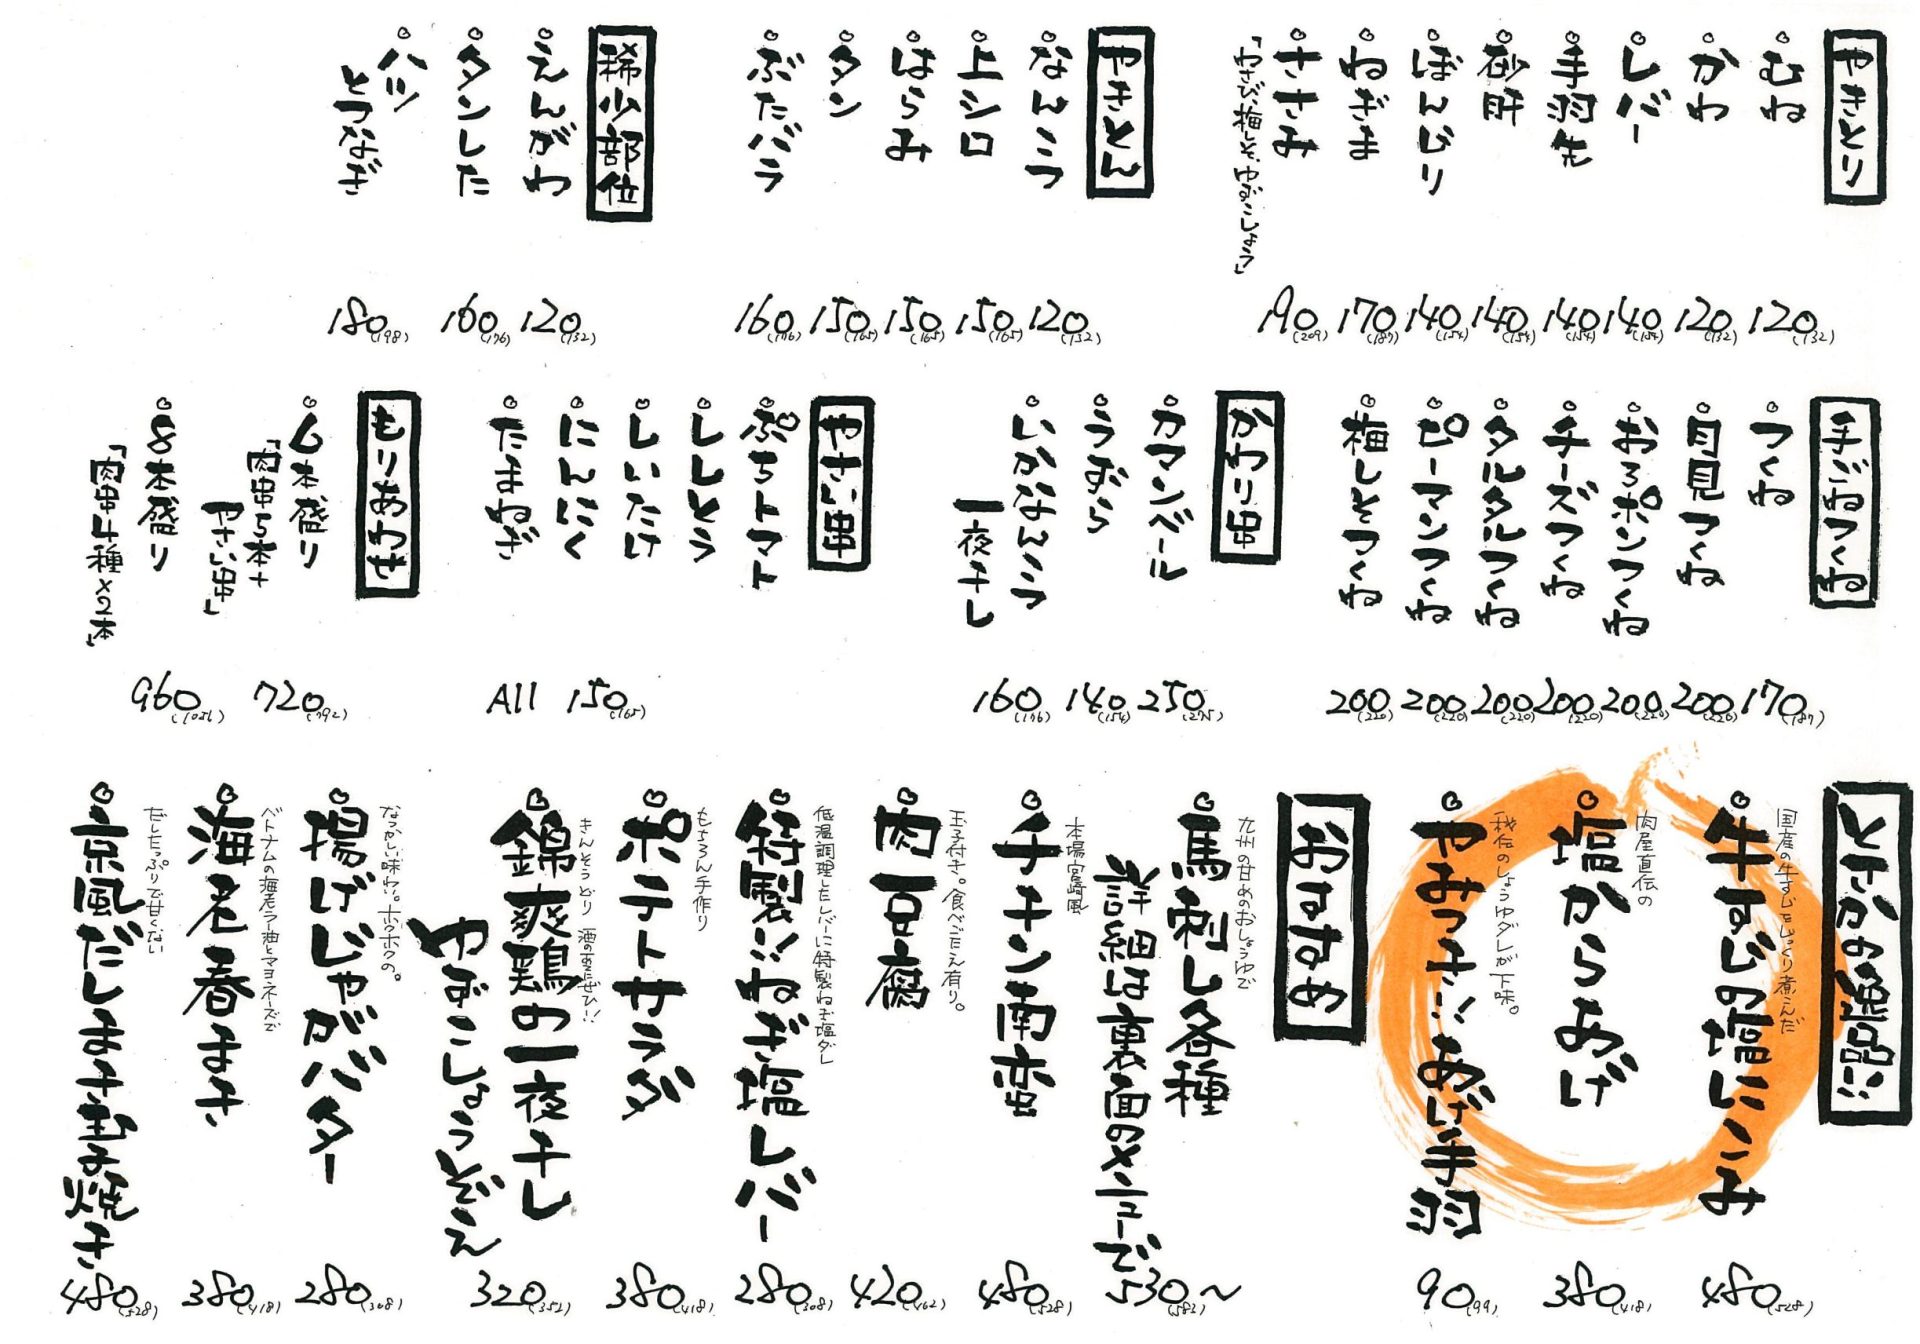 やきとり
むね
120(132)
かわ
120(132)
レバー
140(154)
手羽先
140(154)
砂肝
140(154)
ぼんじり
140(154)
ねぎま
170(187)
ささみ
「わさび、梅しそ、ゆずこしょう」
190(209)
やきとん
なんこつ
120(132)
上シロ
150(165)
はらみ
150(165)
タン
150(165)
ぶたバラ
160(176)
稀少部位
えんがわ
120(132)
タンした
160(176)
ハツ
とつなぎ
180(198)
手ごねつくね
つくね
170(187)
月見つくね
200(220)
おろポンつくね
200(220)
チーズつくね
200(220)
タルタルつくね
200(220)
ピーマンつくね
200(220)
梅しそつくね
200(220)
かわり串
カマンベール
250(275)
うずら
140(154)
いかなんこつ
一夜干し
160(176)
やさい串
ぷちトマト
ししとう
しいたけ
にんにく
たまねぎ
All 150(165)
もりあわせ
6本盛り
「肉串5本+
やさい串」
720(792)
8本盛り
「肉串4種×2本」
960(1056)
とさかの
国産の牛すじをじっくり煮こんだ
牛すじの塩にこみ
480(528)
肉屋直伝の
塩からあげ
380(418)
秘伝のしょうゆダレが下味。
やみつき!!あげ手羽
90(99)
おすすめ
九州の甘めのおしょうゆで
馬刺し各種
詳細は裏面のメニューで
530(583)〜
本場宮崎風
チキン南蛮
480(528)
玉子付き。食べごたえ有り。
肉豆腐
420(462)
低温調理したレバーに特製ねぎ塩ダレ
特製!!ねぎ塩レバー
280(308)
もちろん手作り
ポテトサラダ
380(418)
きんそうどり 酒のあてにぜひ!!
錦爽鶏の一夜干し
ゆずこしょうぞえ
320(352)
なつかしい味わい。ホクホクの。
揚げじゃがバター
280(308)
ベトナムの海老ラー油とマヨネーズで
海老春まき
380(418)
だしたっぷりで甘くない
京風だしまき玉子焼き
480(528)